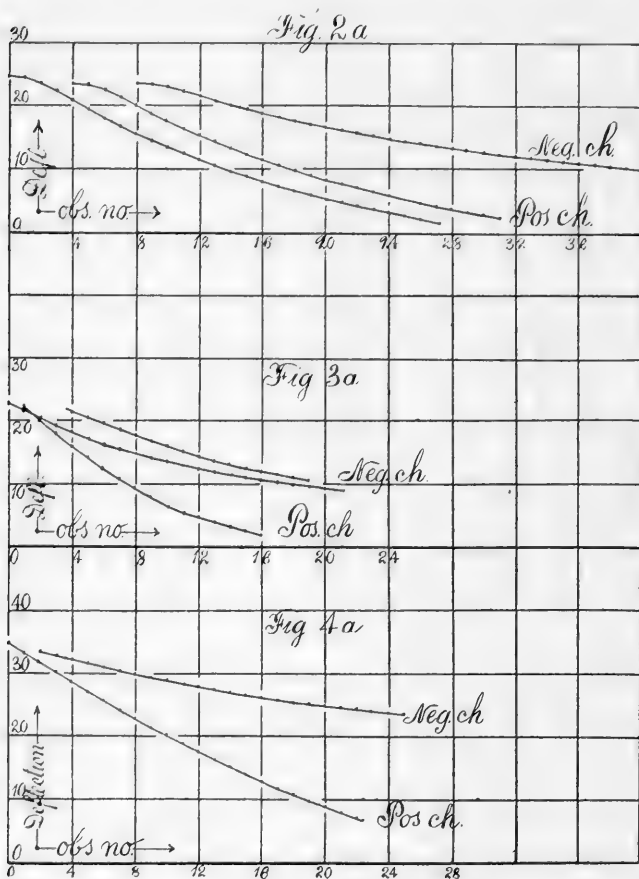 Fig. 2a
30
20
10
0
Defl.
obs. no.
Neg. ch.
Pos ch.
4 8 12 16 20 24 28 32 36
Fig 3a
30
20
10
Defl.
obs no.
Neg. ch.
Pos. ch
0 4 8 12 16 20 24
Fig 4a
40
30
20
10
0
Deflection
obs no
Neg. ch
Pos ch.
0 4 8 12 16 20 24 28